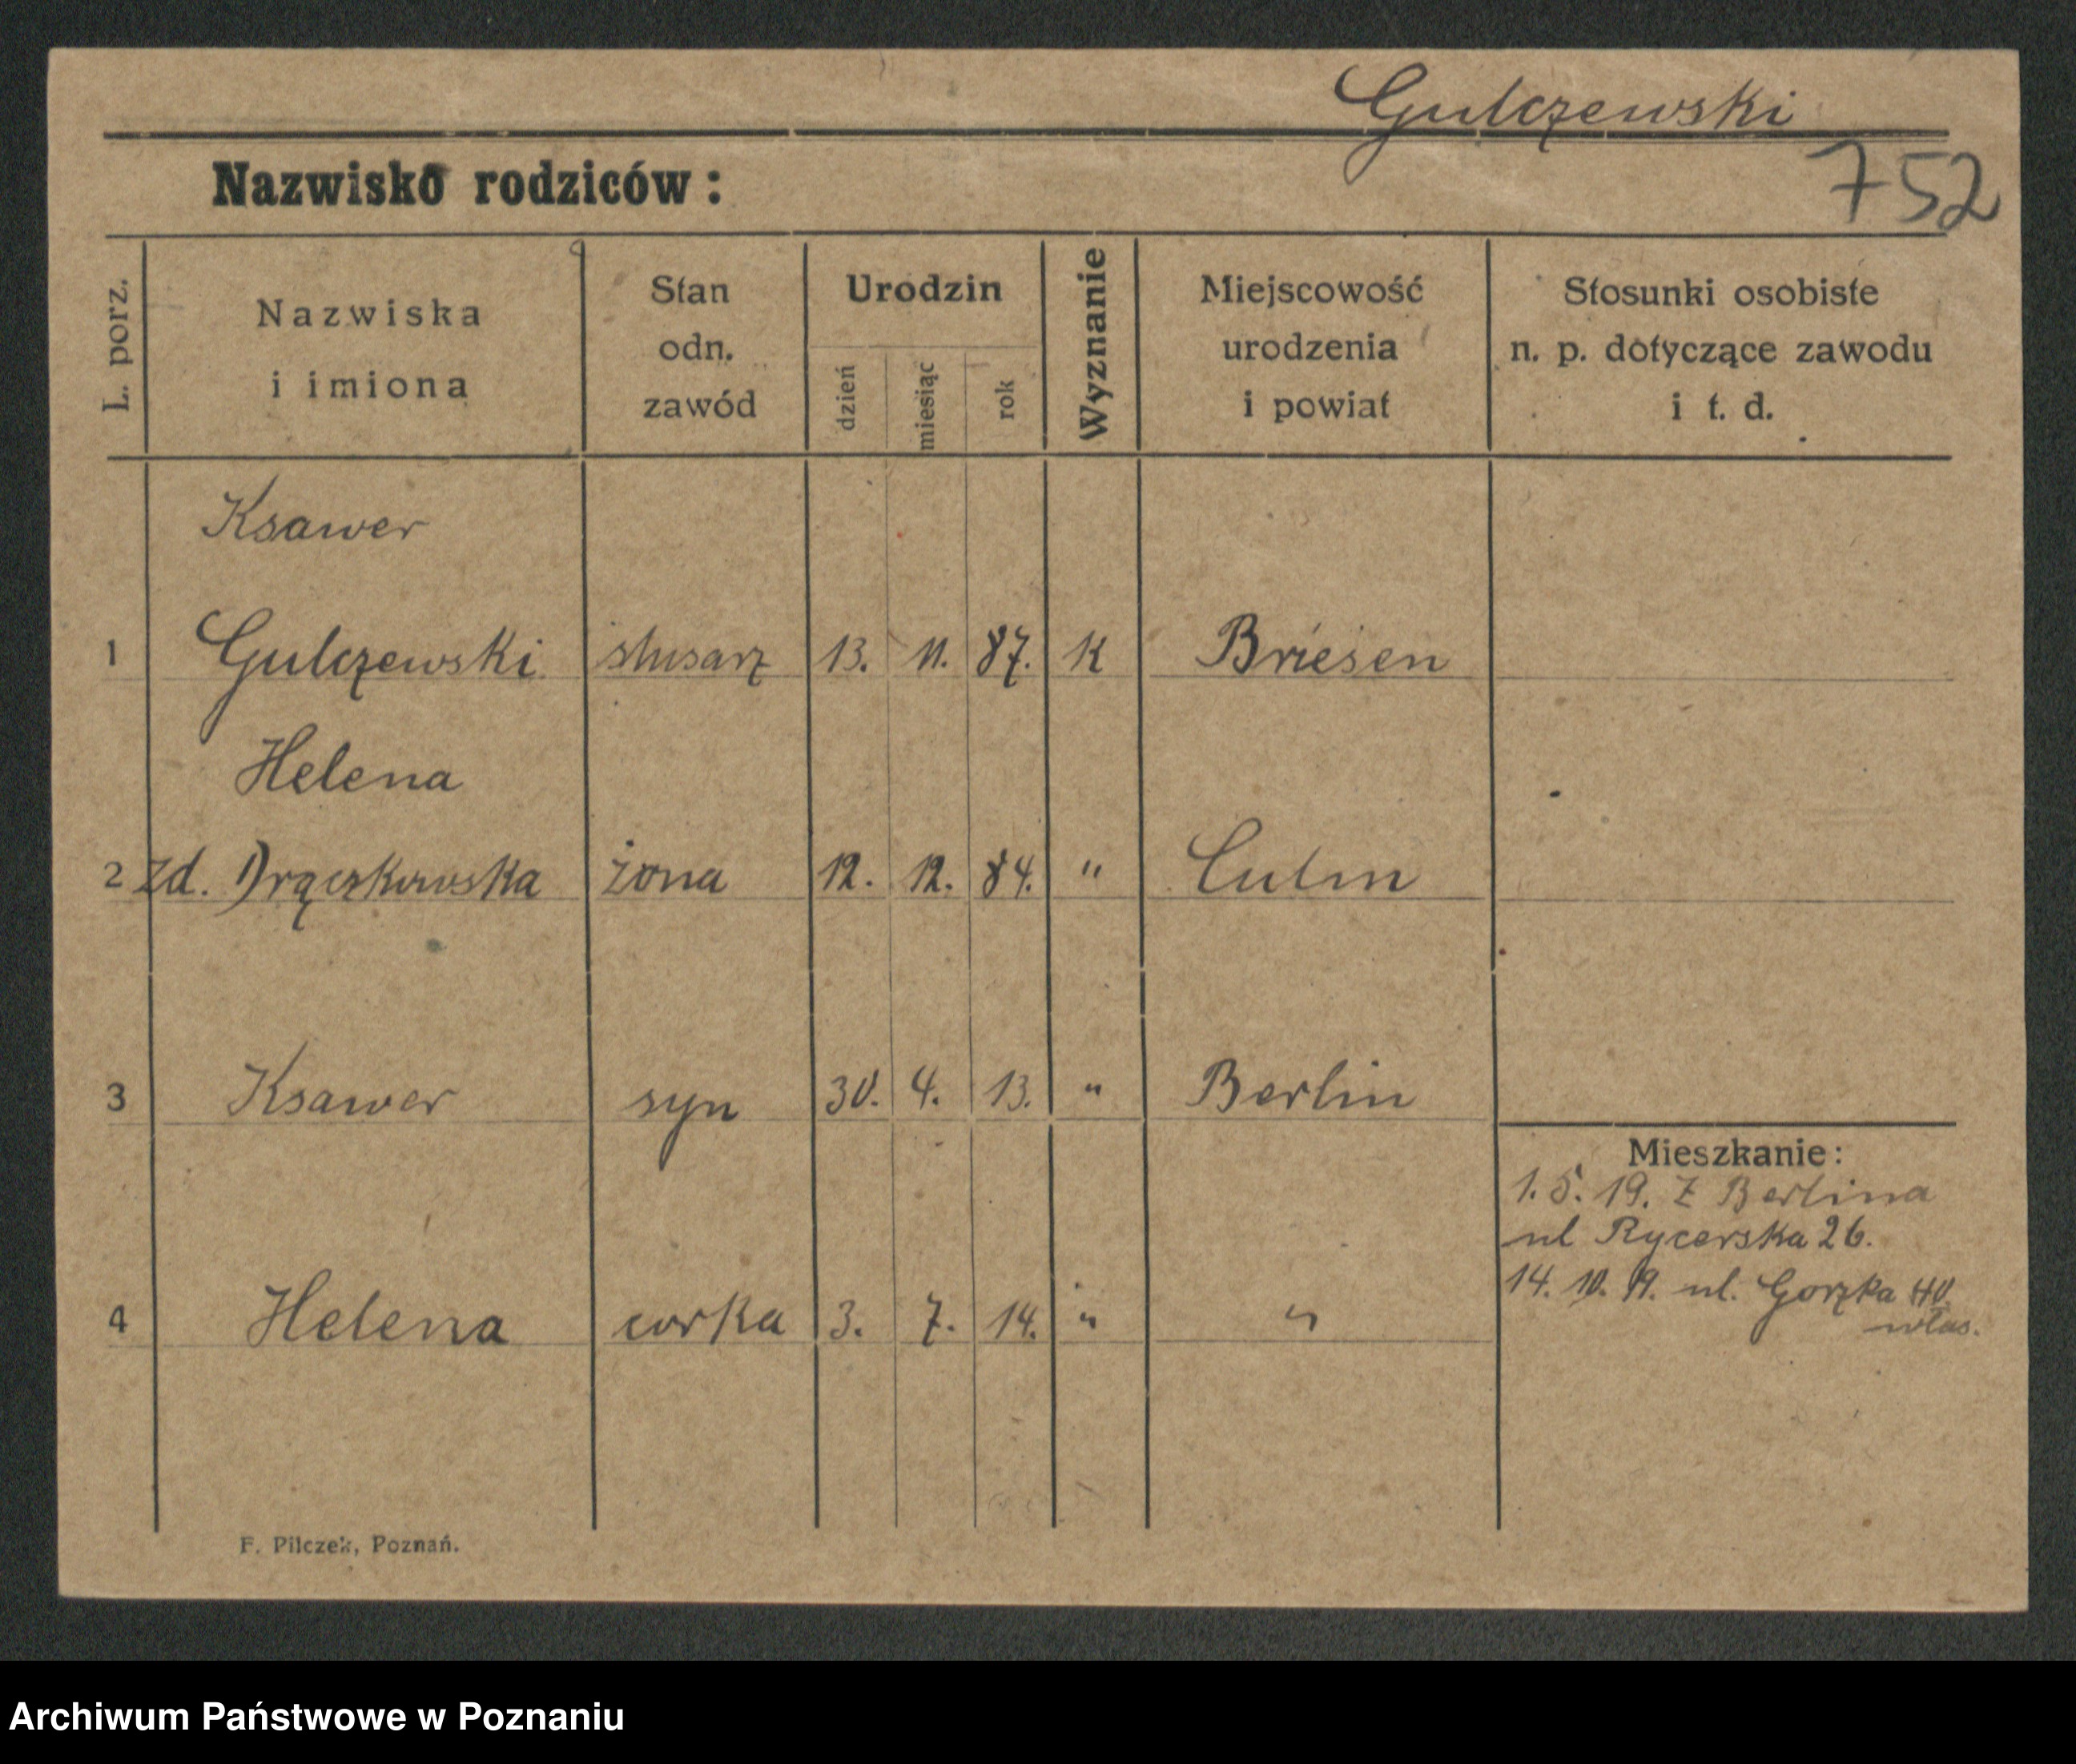 Gulczewski
752
Nazwisko rodziców:
L. porz.
Nazwiska
i imiona
Stan
odn.
zawód
Urodzin
dzień
miesiąc
rok
Wyznanie
Miejscowość
urodzenia
i powiat
Stosunki osobiste
n. p. dotyczące zawodu
i t. d.
Ksawer
1 Gulczewski ślusarz 13. 11. 87. K Briesen
Helena
2 zd. żona 12. 12. 84. " Culm
3 Ksawer syn 30. 4. 13. " Berlin
4 Helena corka 3. 7. 14. " "
Mieszkanie:
1. 5. 19. Z Berlina
ul Rycerska 26.
14. 10. 19. ul. 40
włas.
F. Pilczek, Poznań.
Archiwum Państwowe w Poznaniu